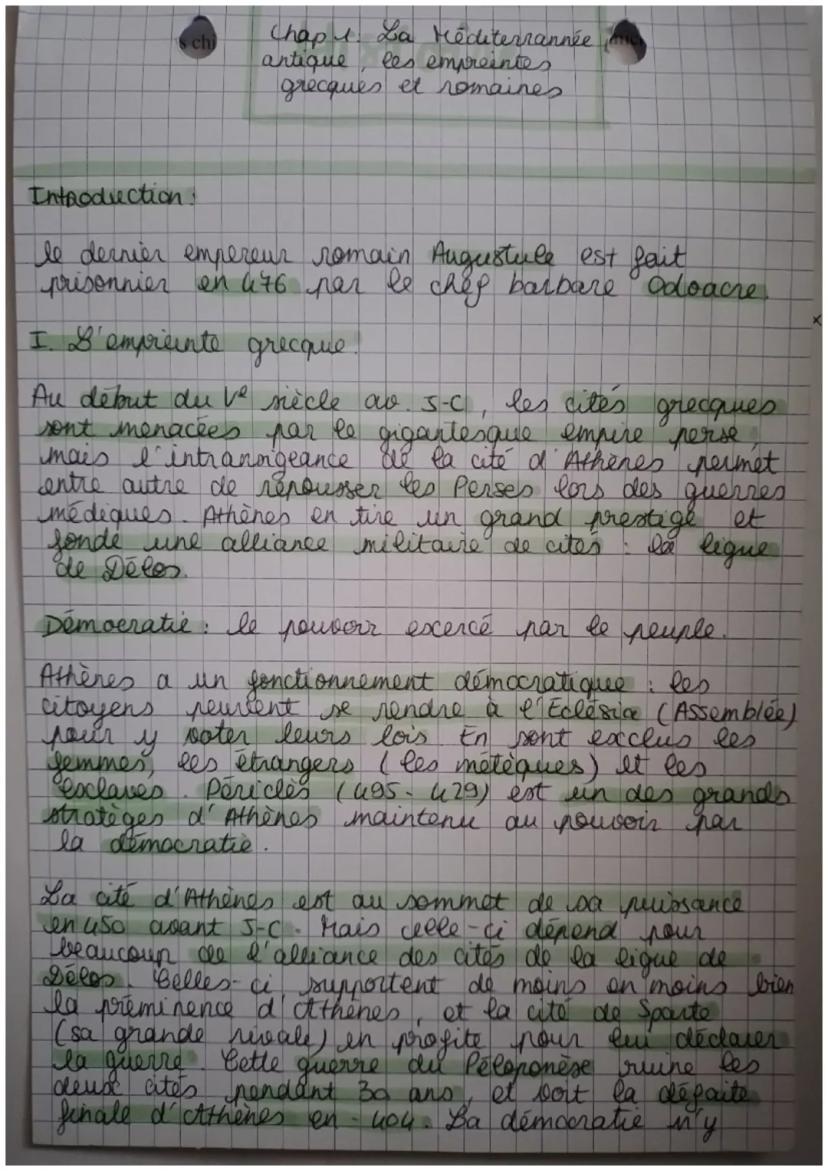 s chi
Chap 1: La Méditerrannée
antique, les empreintes
grecques et romaines
Introduction:
le dernier empereur romain Augustule est fait
prisonnier en 476 par le chef barbare Odoacre.
x
I. L'empreinte grecque.
Au début du Ve siècle av. J-C, les cités grecques
sont menacées par le gigantesque empire perse,
mais l'intransigeance de la cité d'Athènes permet
entre autre de répousser les Perses lors des guerres
médiques. Athènes en tire un grand prestige et
fonde une alliance militaire de cités : la ligue
de Délos.
Démocratie : le pouvoir excercé par le peuple.
Athènes a un fonctionnement démocratique : les
citoyens peuvent se rendre à l'Eclésia (Assemblée)
pour y voter leurs lois. En sont exclus les
femmes, les étrangers (les métèques) et les
esclaves. Périclès (495-429) est un des grands
stratèges d'Athènes maintenu au pouvoir par
la démocratie.
La cité d'Athènes est au sommet de sa puissance
en 450 avant J-C. Mais celle-ci dépend pour
beaucoup de l'alliance des cités de la ligue de
Délos. Celles-ci supportent de moins en moins bien
la préminence d'Athènes, et la cité de Sparte
(sa grande rivale) en profite pour lui déclarer
la guerre. Cette guerre du Péloponèse ruine les
deux cités pendant 30 ans, et voit la défaite
finale d'Athènes en -404. La démocratie n'y